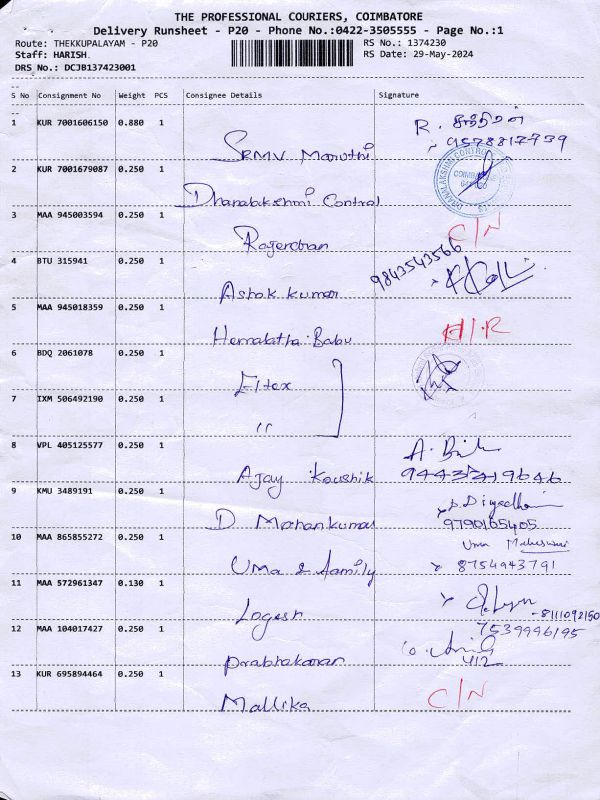 THE PROFESSIONAL COURIERS, COIMBATORE
Delivery Runsheet - P20 - Phone No.:0422-3505555 - Page No.:1
Route: THEKKUPALAYAM - P20 RS No.: 1374230
Staff: HARISH. RS Date: 29-May-2024
DRS No.: DCJB137423001
S No Consignment No Weight PCS Consignee Details Signature
1 KUR 7001606150 0.880 1 SRMV Maruthi R.
2 KUR 7001679087 0.250 1 Dhanalakshmi Control DHANALAKSHMI CONTROL
3 MAA 945003594 0.250 1 Rajendran C/N
4 BTU 315941 0.250 1 Ashok kumar 9843543566
5 MAA 945018359 0.250 1 Hemalatha Babu H/R
6 BDQ 2061078 0.250 1 Eltex
7 IXM 506492190 0.250 1 "
8 VPL 405125577 0.250 1 Ajay Koushik A.
9 KMU 3489191 0.250 1 D Mohankumar 9790165405
10 MAA 865855272 0.250 1 Uma & family Uma Maheswari
8754943791
11 MAA 572961347 0.130 1 Logesh - 8111092150
7539996195
12 MAA 104017427 0.250 1 Prabhakaran 412
13 KUR 695894464 0.250 1 Mallika C/N